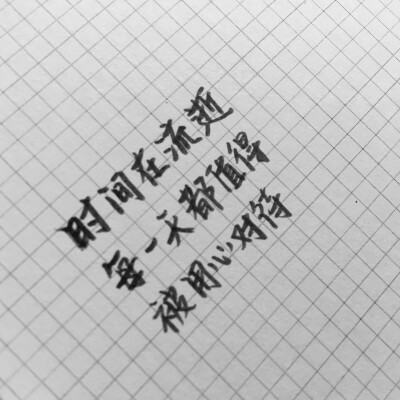 时间在流逝
每一天都值得
被用心对待